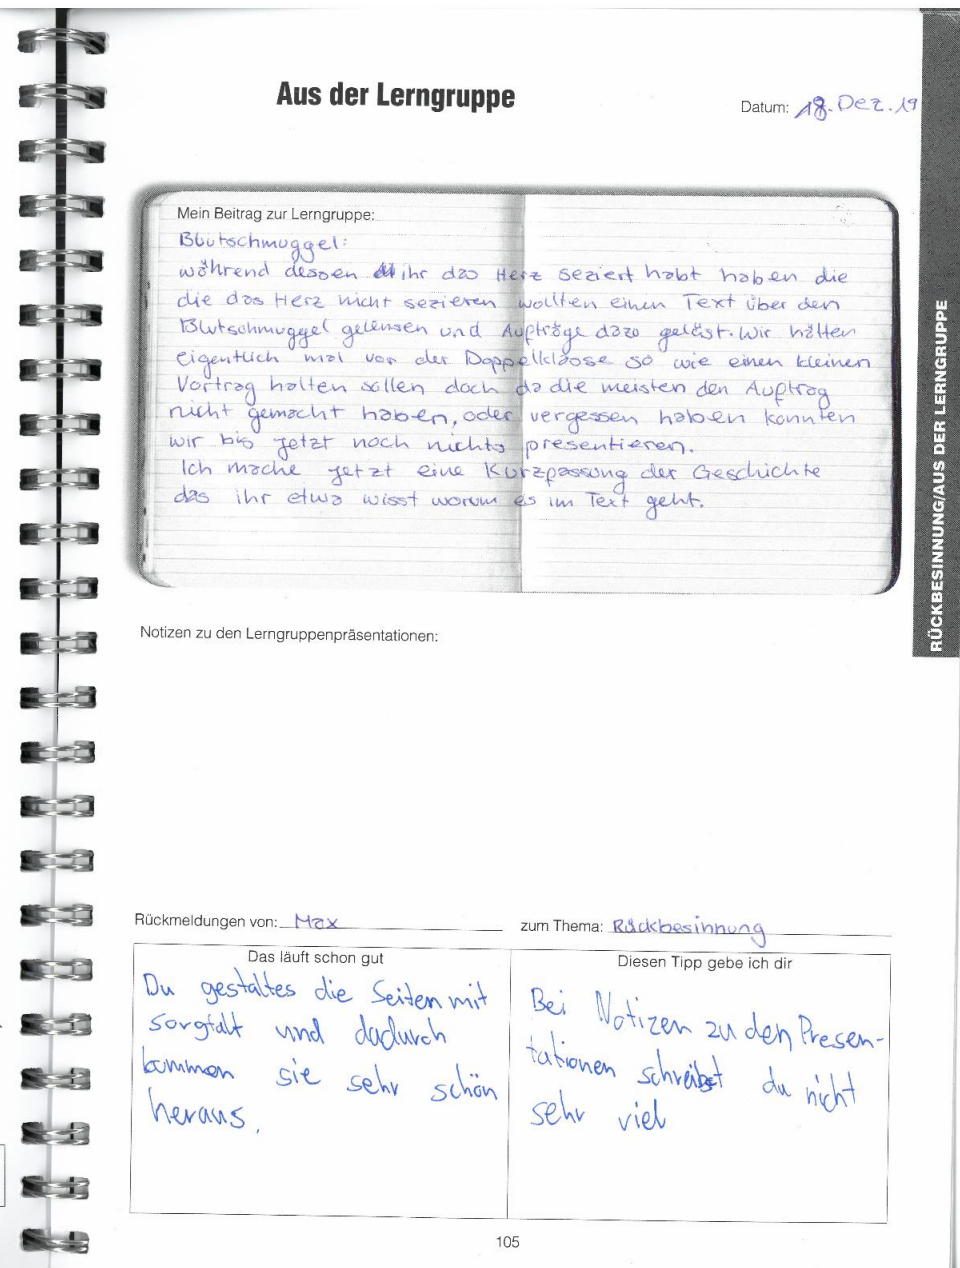 Aus der Lerngruppe
Datum: 18. Dez. 19
Mein Beitrag zur Lerngruppe:
Blutschmuggel:
während dessen ihr das Herz seziert habt haben die
die das Herz nicht sezieren wollten einen Text über den
Blutschmuggel gelensen und Aufträge dazo gelöst. Wir hätten
eigentlich mal vor der Doppelklasse so wie einen kleinen
Vortrag halten sollen doch da die meisten den Auftrag
nicht gemacht haben, oder vergessen haben konnten
wir bis jetzt noch nichts presentieren.
Ich mache jetzt eine Kurzfassung der Geschichte
das ihr etwa wisst worum es im Text geht.
RÜCKBESINNUNG/AUS DER LERNGRUPPE
Notizen zu den Lerngruppenpräsentationen:
Rückmeldungen von: Max zum Thema: Rückbesinnung
Das läuft schon gut
Du gestaltes die Seiten mit
Sorgfalt und dadurch
kommen sie sehr schön
heraus.
Diesen Tipp gebe ich dir
Bei Notizen zu den Presen-
tationen schreibst du nicht
sehr viel
105